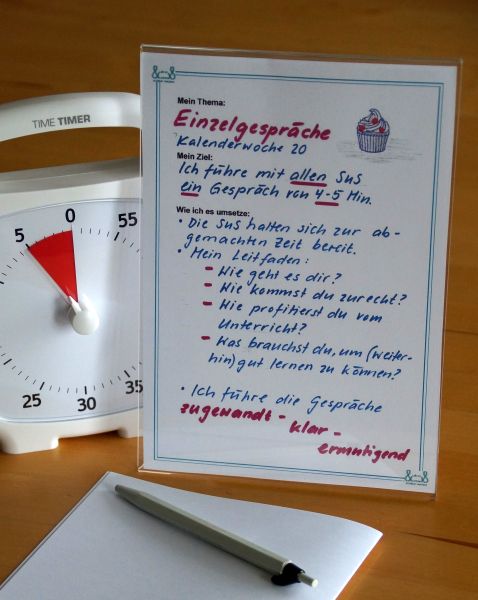 TIME TIMER
5
0
25
30
35
Mein Thema:
Einzelgespräche
Kalenderwoche 20
Mein Ziel:
Ich führe mit allen SuS
ein Gespräch von 4-5 Min.
Wie ich es umsetze:
• Die SuS halten sich zur ab-
gemachten Zeit bereit.
• Mein Leitfaden:
- Wie geht es dir?
- Wie kommst du zurecht?
- Wie profitierst du vom
Unterricht?
- Was brauchst du, um (weiter-
hin) gut lernen zu können?
• Ich führe die Gespräche
zugewandt -
klar -
ermutigend